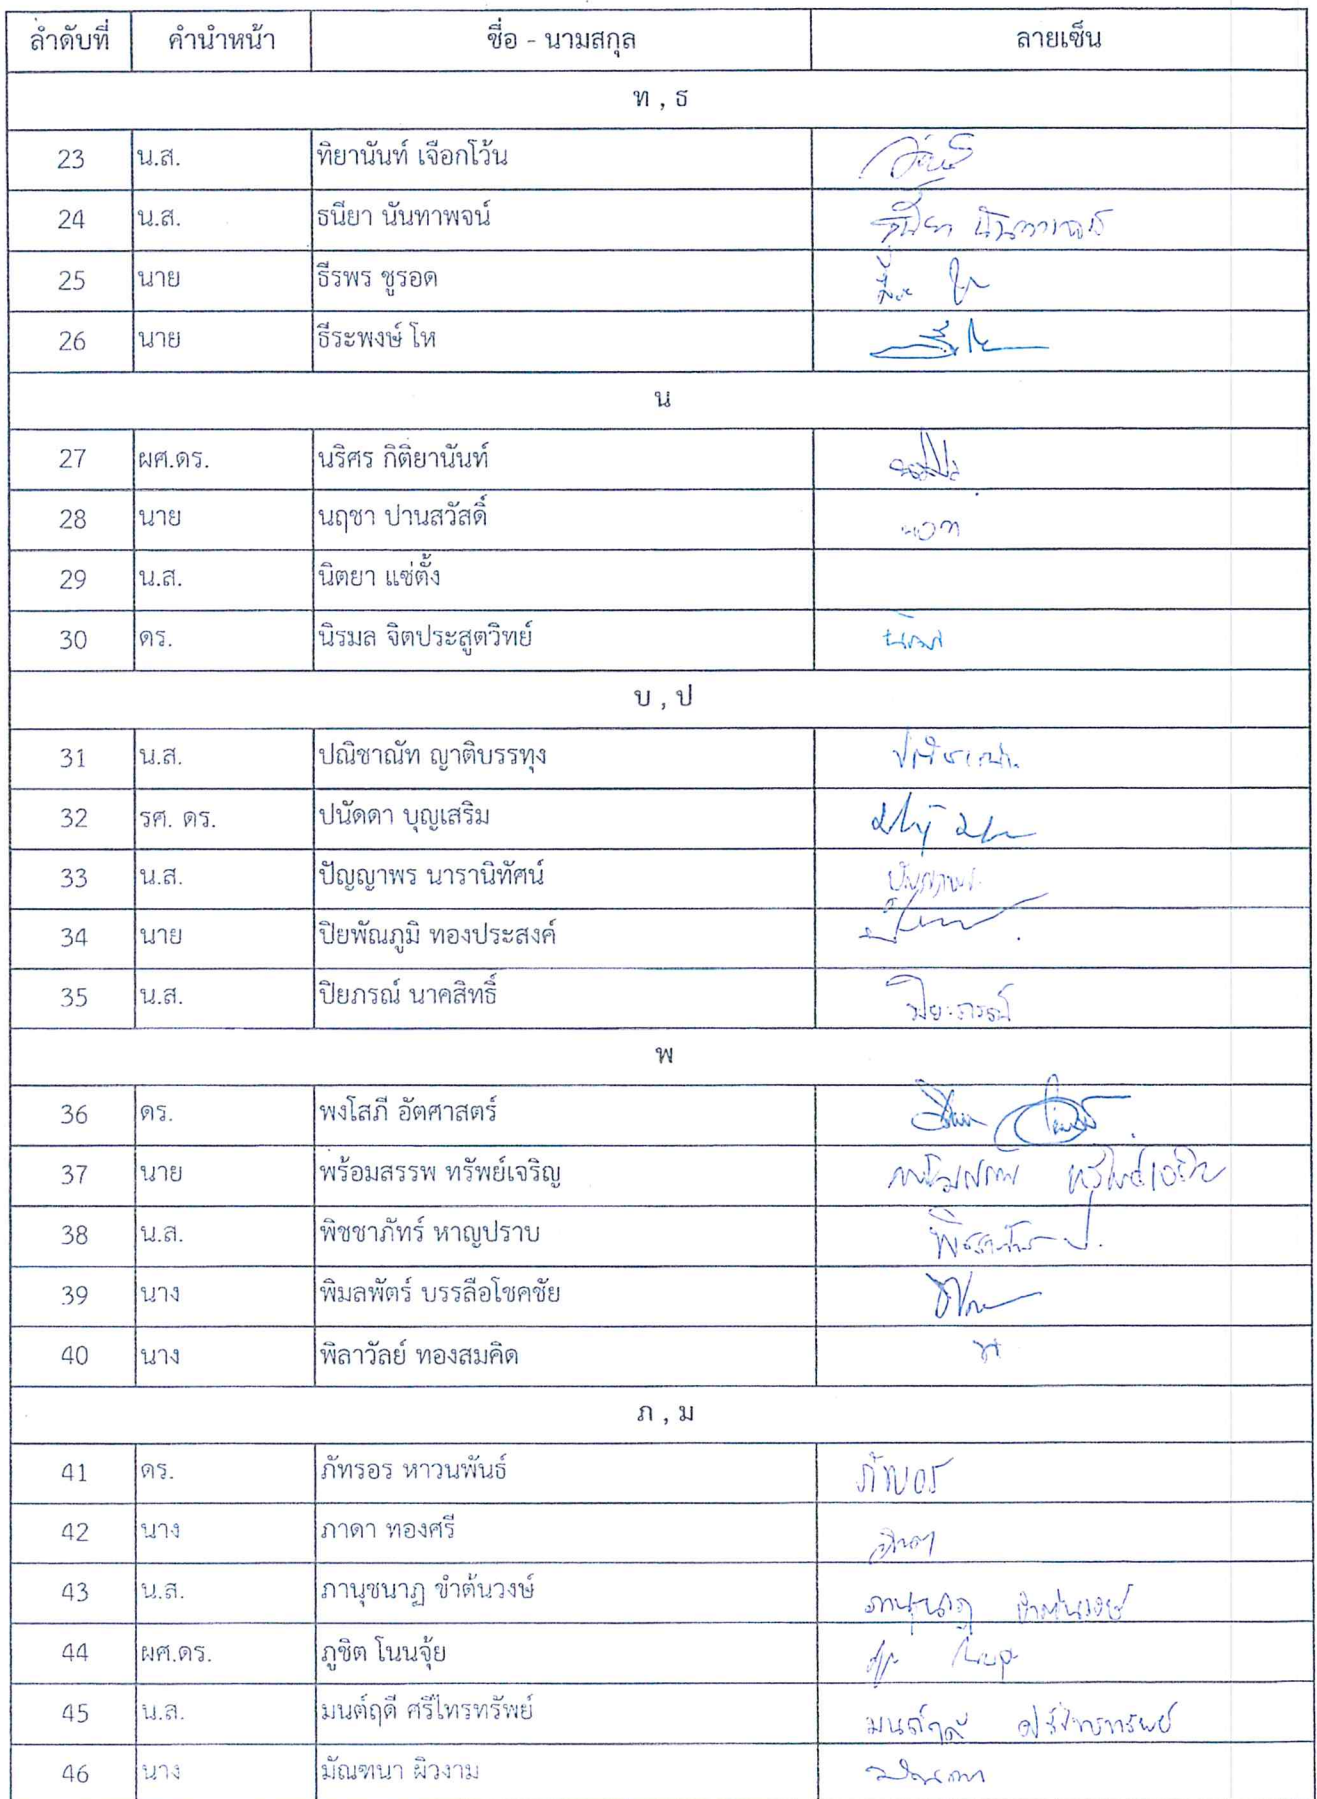 ลำดับที่ คำนำหน้า ชื่อ - นามสกุล ลายเซ็น
ท , ธ
23 น.ส. ทิยานันท์ เจือกโว้น
24 น.ส. ธนียา นันทาพจน์ ธนียา นันทาพจน์
25 นาย ธีรพร ชูรอด
26 นาย ธีระพงษ์ โห
น
27 ผศ.ดร. นริศร กิติยานันท์
28 นาย นฤชา ปานสวัสดิ์
29 น.ส. นิตยา แซ่ตั้ง
30 ดร. นิรมล จิตประสูตวิทย์
บ , ป
31 น.ส. ปณิชาณัท ญาติบรรทุง
32 รศ. ดร. ปนัดดา บุญเสริม
33 น.ส. ปัญญาพร นารานิทัศน์ ปัญญาพร
34 นาย ปิยพัณภูมิ ทองประสงค์
35 น.ส. ปิยภรณ์ นาคสิทธิ์ ปิยะภรณ์
พ
36 ดร. พงโสภี อัตศาสตร์
37 นาย พร้อมสรรพ ทรัพย์เจริญ พร้อมสรรพ ทรัพย์เจริญ
38 น.ส. พิชชาภัทร์ หาญปราบ
39 นาง พิมลพัตร์ บรรลือโชคชัย
40 นาง พิลาวัลย์ ทองสมคิด
ภ , ม
41 ดร. ภัทรอร หาวนพันธ์ ภัทรอร
42 นาง ภาดา ทองศรี ภาดา
43 น.ส. ภานุชนาฏ ขำต้นวงษ์ ภานุชนาฏ ขำต้นวงษ์
44 ผศ.ดร. ภูชิต โนนจุ้ย
45 น.ส. มนต์ฤดี ศรีไทรทรัพย์ มนต์ฤดี ศรีไทรทรัพย์
46 นาง มัณฑนา ผิวงาม มัณฑนา